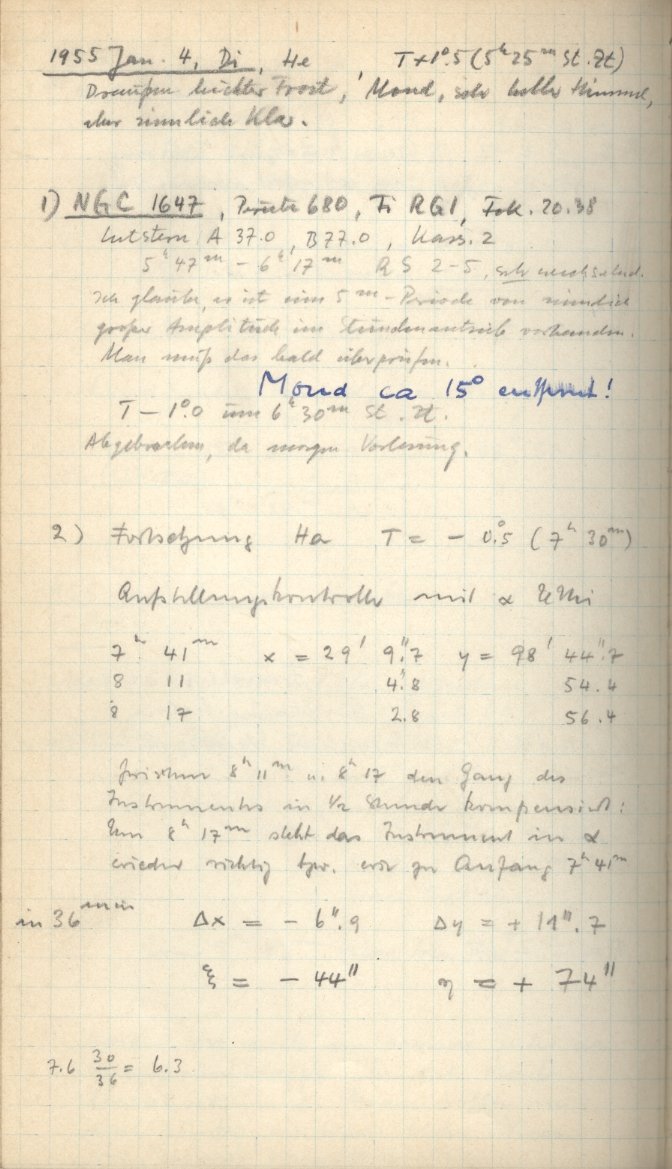 1955 Jan. 4, Di, He T+1°.5 (5h 25m St. Zt)
Draussen leichter Frost, Mond, sehr heller Himmel,
aber ziemlich klar.
1) NGC 1647, Platte 680, Fi RG1, Fok. 20.38
Leitstern A 37.0, B 77.0, Kass. 2
5h 47m – 6h 17m RS 2–5, sehr wechselnd.
Ich glaube, es ist eine 5m-Periode von ziemlich
grosser Amplitude im Stundenantrieb vorhanden.
Man muß das bald überprüfen.
Mond ca 15° entfernt!
T – 1°.0 um 6h 30m St. Zt.
Abgebrochen, da morgen Vorlesung.
2) Fortsetzung Ha T = – 0°.5 (7h 30m)
Aufstellungskontrolle mit α
7h 41m x = 29' 9".7 y = 98' 44".7
8 11 4".8 54.4
8 17 2.8 56.4
Zwischen 8h 11m u. 8h 17 den Gang des
Instrumentes in 1/2 Stunde kompensiert:
Um 8h 17m steht das Instrument in α
wieder richtig bzw. wie zu Anfang 7h 41m
in 36 min Δx = – 6".9 Δy = + 11".7
ξ = – 44" η = + 74"
7.6 30/36 = 6.3